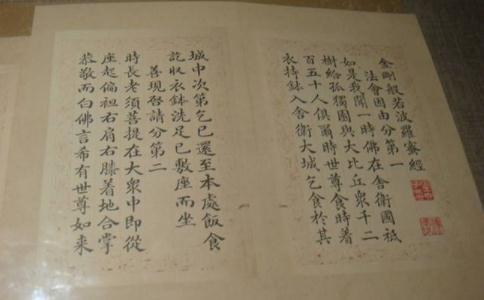 金剛般若波羅蜜經
法會因由分第一
如是我聞一時佛在舍衛國祇
樹給孤獨園與大比丘眾千二
百五十人俱爾時世尊食時着
衣持鉢入舍衛大城乞食於其
城中次第乞已還至本處飯食
訖收衣鉢洗足已敷座而坐
善現啓請分第二
時長老須菩提在大眾中即從
座起偏袒右肩右膝着地合掌
恭敬而白佛言希有世尊如來